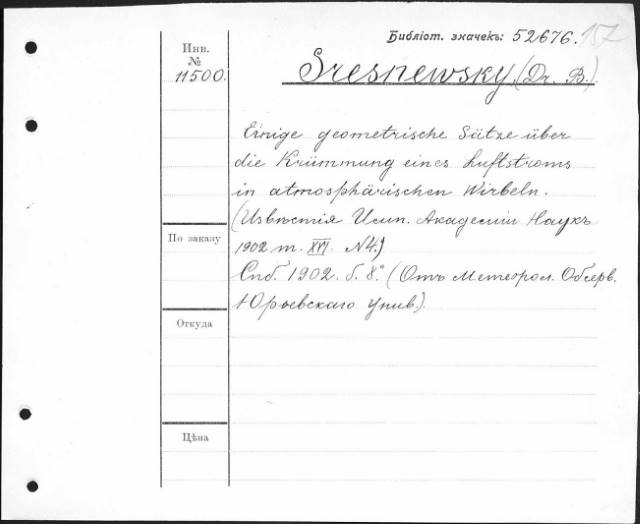 Библіот. значекъ: 52676. 157
Инв.
№
11500.
Sresnewsky (Dr. B.)
Einige geometrische Sätze über
die Krümmung eines Luftstroms
in atmosphärischen Wirbeln.
(Извѣстія Имп. Академіи Наукъ
1902 т. XVI. №4.)
Спб. 1902. б. 8.° (Отъ Метеорол. Обсерв.
Юрьевскаго Унив.)
По заказу
Откуда
Цѣна